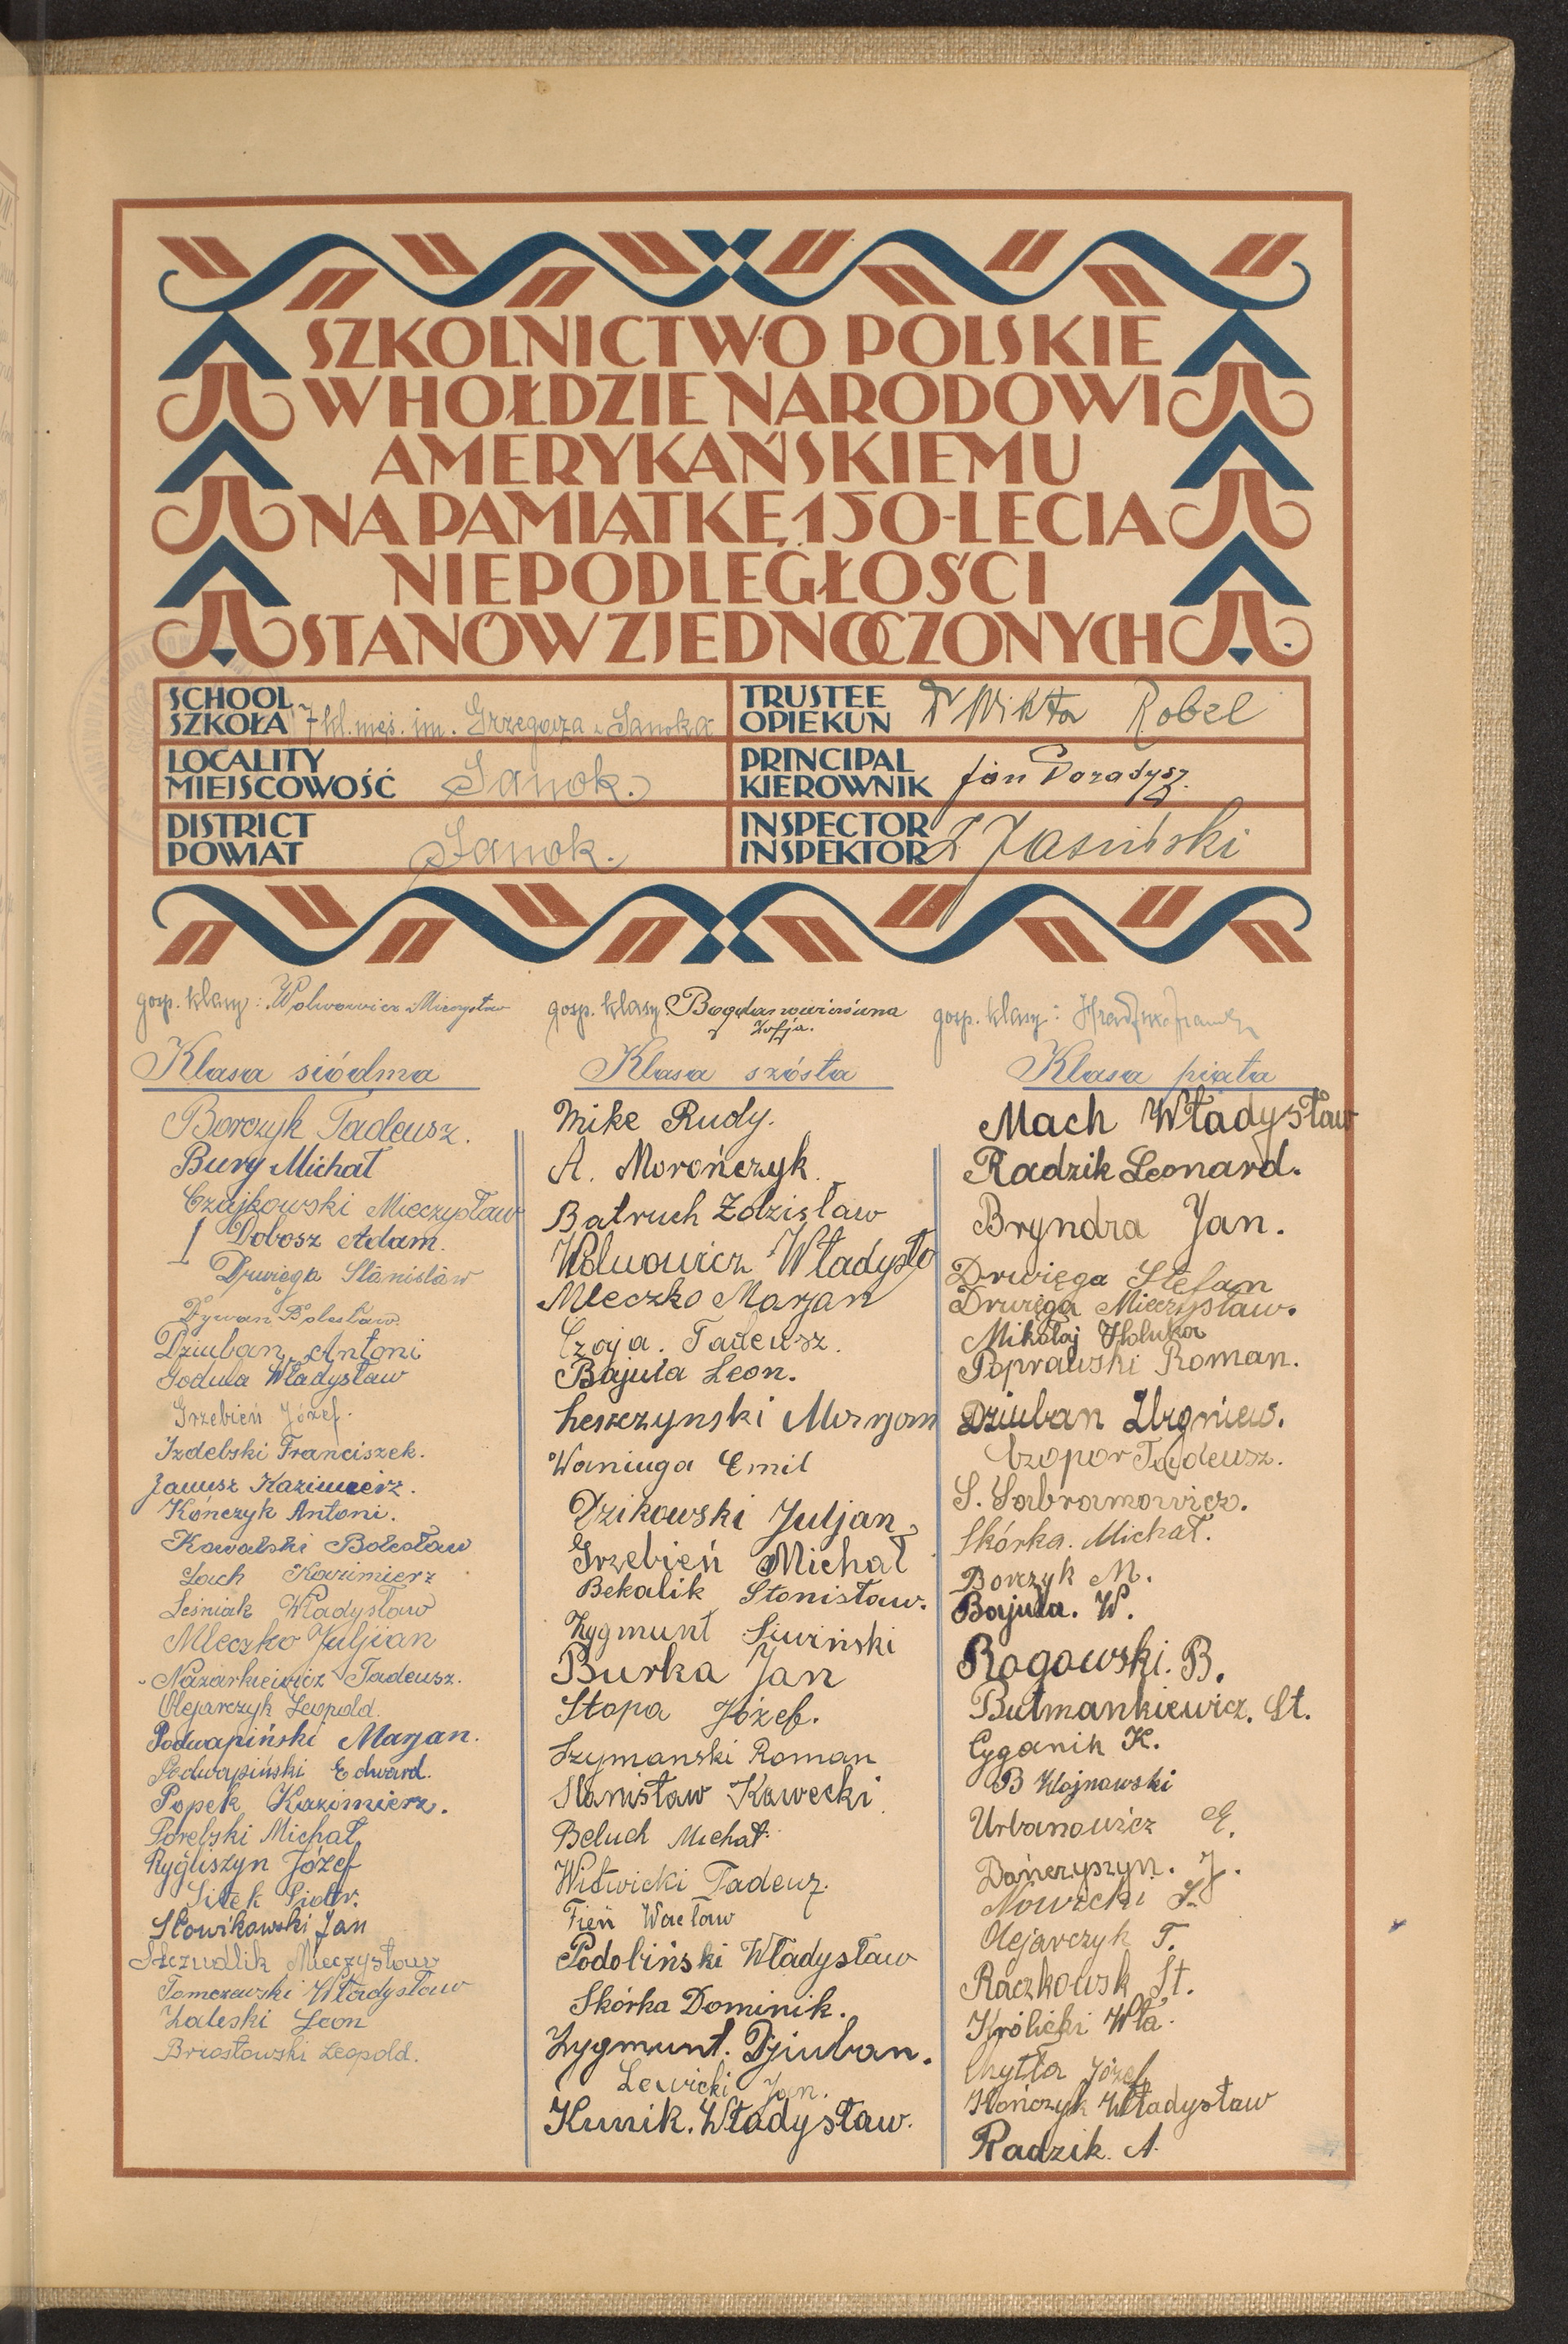 SZKOLNICTWO POLSKIE
W HOŁDZIE NARODOWI
AMERYKAŃSKIEMU
NA PAMIĄTKĘ 150-LECIA
NIEPODLEGŁOŚCI
STANÓW ZJEDNOCZONYCH
SCHOOL
SZKOŁA 7 kl. męs. im. Grzegorza z Sanoka
TRUSTEE
OPIEKUN Dr Wiktor Robel
LOCALITY
MIEJSCOWOŚĆ Sanok.
PRINCIPAL
KIEROWNIK Jan Poradysz
DISTRICT
POWIAT Sanok.
INSPECTOR
INSPEKTOR Jasiński
gosp. klasy: Wolwowicz Mieczysław
Klasa siódma
Borczyk Tadeusz.
Bury Michał
Czajkowski Mieczysław
Dobosz Adam.
Drwięga Stanisław
Dywan Bolesław.
Dziuban Antoni
Goduła Władysław
Grzebień Józef.
Izdebski Franciszek.
Janusz Kazimierz.
Kończyk Antoni.
Kowalski Bolesław
Lach Kazimierz
Leśniak Władysław
Mleczko Juljian
Nazarkiewicz Tadeusz.
Olejarczyk Leopold.
Podwapiński Marjan.
Podwapiński Edward.
Popek Kazimierz.
Porębski Michał
Rygliszyn Józef
Sitek Piotr.
Słowikowski Jan
Mieczysław
Tomczewski Władysław
Zaleski Leon
Brzostowski Leopold.
gosp. klasy Bogdanowiczówna
Zofja.
Klasa szósta
Mike Rudy.
A. Morończyk
Batruch Zdzisław
Wolwowicz Władysło
Mleczko Marjan
Czoja. Tadeusz.
Bajuła Leon.
Leszczynski Marjan
Waniuga Emil
Dzikowski Juljan
Grzebień Michał
Bekalik Stonisław.
Zygmunt Siwiński
Burka Jan
Stopa Józef.
Szymanski Roman
Stanisław Kawecki
Beluch Michał
Witwicki Tadeusz.
Fień Wacław
Podoliński Władysław
Skórka Dominik.
Zygmunt. Dziuban.
Lewicki Jan.
Kunik. Władysław.
gosp. klasy:
Klasa piąta
Mach Władysław
Radzik Leonard.
Bryndza Jan.
Drwięga Stefan
Drwięga Mieczysław.
Mikołaj Hołuka
Poprawski Roman.
Dziuban Zbigniew.
Czopor Tadeusz.
S. Sabramowicz.
Skórka. Michał.
Borczyk M.
Bajuła. W.
Rogowski. B.
Butmankiewicz. St.
Cyganik K.
B Wojnawski
Urbanowicz E.
Dańczyszyn. J.
Nowicki J.
Olejarczyk T.
Raczkowsk St.
Królicki Wła.
Chytła Józef
Kończyk Władysław
Radzik. A.